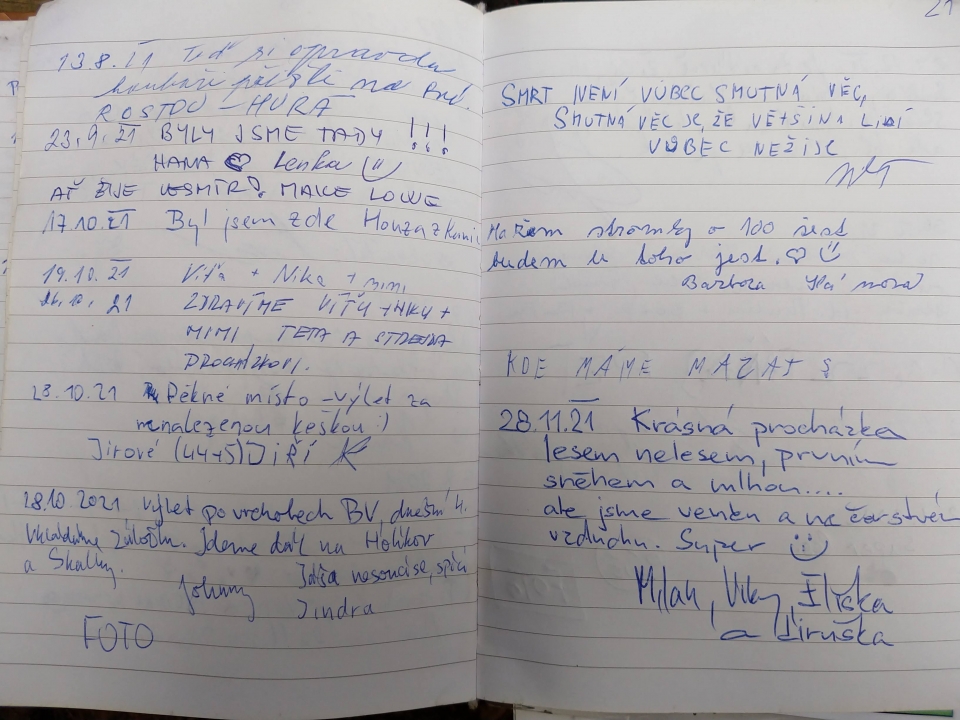 13.8. 21 Teď si opravdu
houbaři
ROSTOU - HURÁ
23.9.21 BYLY JSME TADY !!!
HANA ♡ Lenka
AŤ ŽIJE VESMÍR! MAKE LOWE
17.10.21 Byl jsem zde Honza z
19.10.21 Víťa + Nika + mimi
21 ZDRAVÍME VÍŤU + NIKU +
MIMI TETA A STREJDA
PROCHÁZKOVI.
23.10.21 Pěkné místo - výlet za
nenalezenou keškou :)
Jirové (44+5) JIŘÍ
28.10.2021 výlet po vrcholech BV, dnešní 4.
Jdeme dál na Holíkov
a Skalky.
Johnny
Jindra
FOTO
21
SMRT NENÍ VŮBEC SMUTNÁ VĚC,
SMUTNÁ VĚC JE, ŽE VĚTŠINA LIDÍ
VŮBEC NEŽIJE
stromky o 100 šest
budem u toho jest. ♡
Barbora
KDE MÁME MAZAT
28.11.21 Krásná procházka
lesem nelesem, prvním
sněhem a mlhou....
ale jsme venku a na čerstvém
vzduchu. Super
Milan, Viky, Eliška
a Jiruška